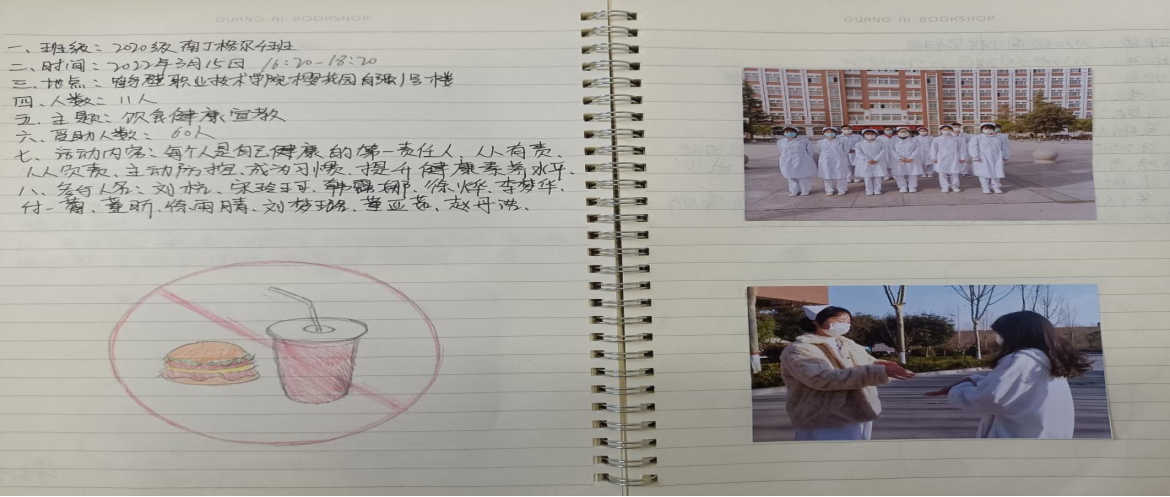 GUANG-AI BOOKSHOP
一、班级：2020级南丁格尔班
二、时间：2022年3月15日 16:20-18:20
三、地点：职业技术学院樱花园自强1号楼
四、人数：11人
五、主题：饮食健康宣教
六、受助人数：60人
七、活动内容：每个人是自己健康的第一责任人，人人有责、
人人负责、主动防控、成为习惯、提升健康素养水平.
八、参与人名：刘 、宋 、韩 娜、徐烨、李梦华、
付一 、董昕、徐雨晴、刘梦 、董亚 、赵丹 、
GUANG-AI BOOKSHOP